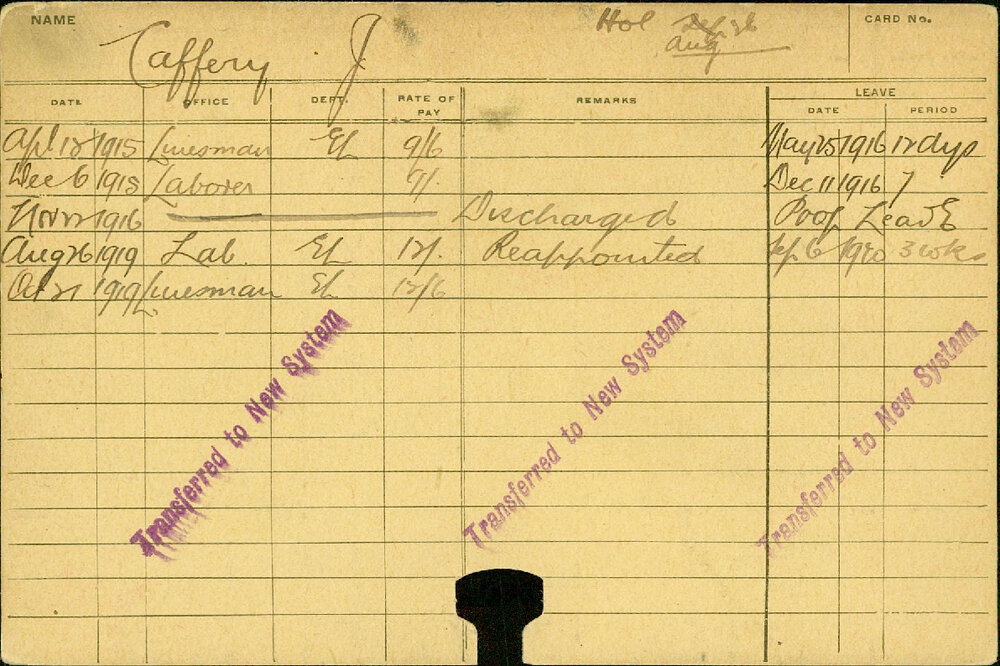 NAME Caffery J. Hol Aug CARD No.
DATE OFFICE DEPT. RATE OF PAY REMARKS LEAVE
DATE PERIOD
Apl 12 1915 Linesman EL 9/6 May 25 1916 12 dys
Dec 6 1915 Laborer 9/. Dec 11 1916 7
Nov 22 1916 Discharged Prop Lead E
Aug 26 1919 Lab. EL 12/. Reappointed Sep 6 1920 3 wks
Oct 21 1919 Linesman EL 12/6
Transferred to New System
Transferred to New System
Transferred to New System